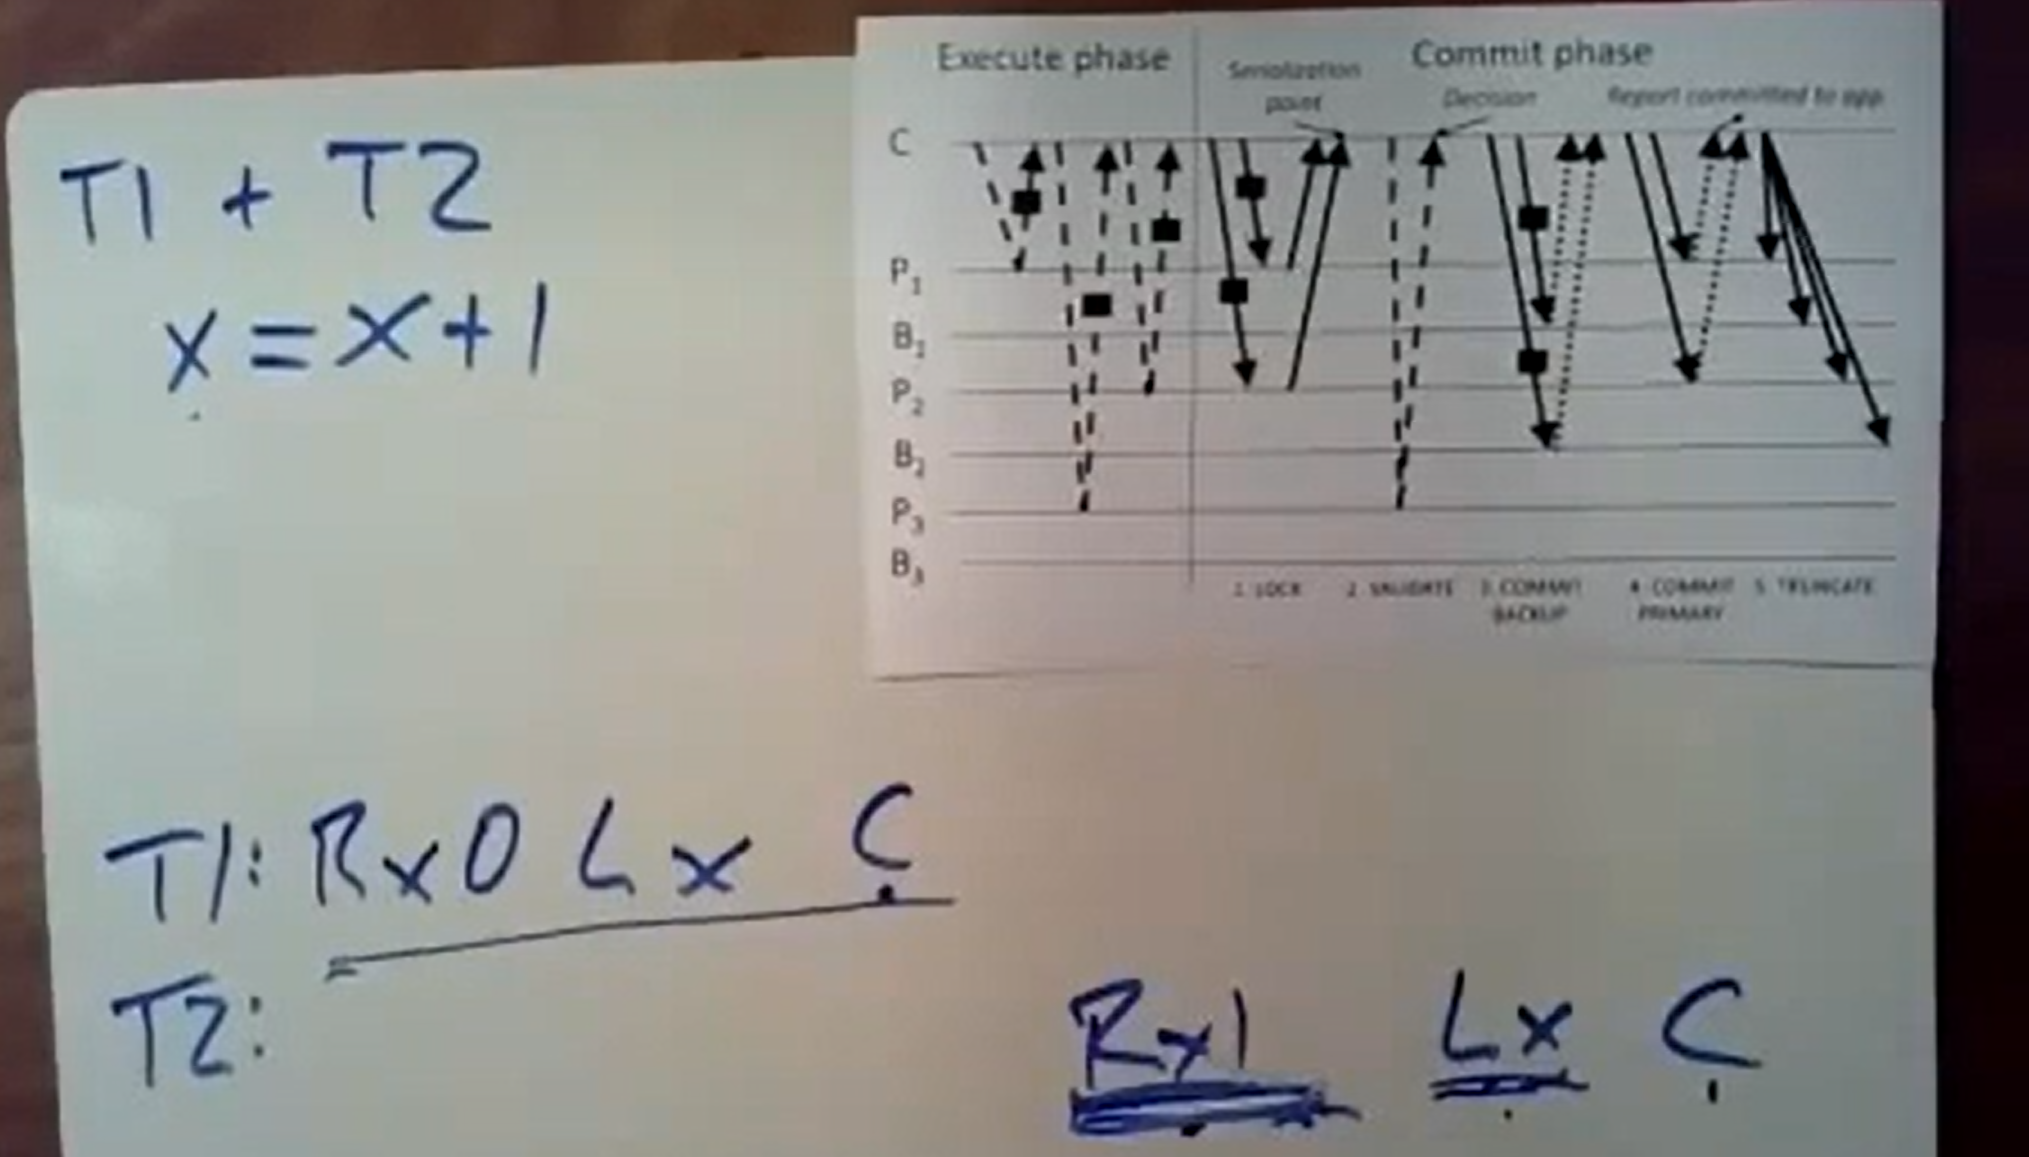 T1 + T2
x = x + 1
Execute phase
Commit phase
Serialization point
Decision
Report committed to app
C
P1
B1
P2
B2
P3
B3
1. LOCK
2. VALIDATE
3. COMMIT BACKUP
4. COMMIT PRIMARY
5. TRUNCATE
T1: Rx0 Lx C
T2: Rx1 Lx C